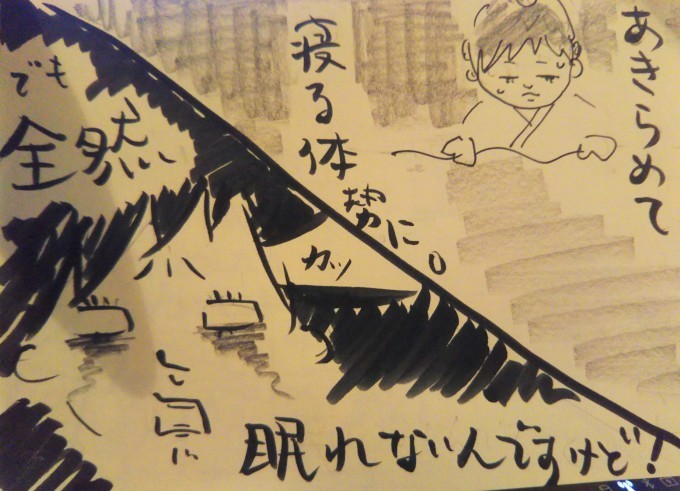 あきらめて
寝る体勢に。
でも
全然
カッ
眠れないんですけど！